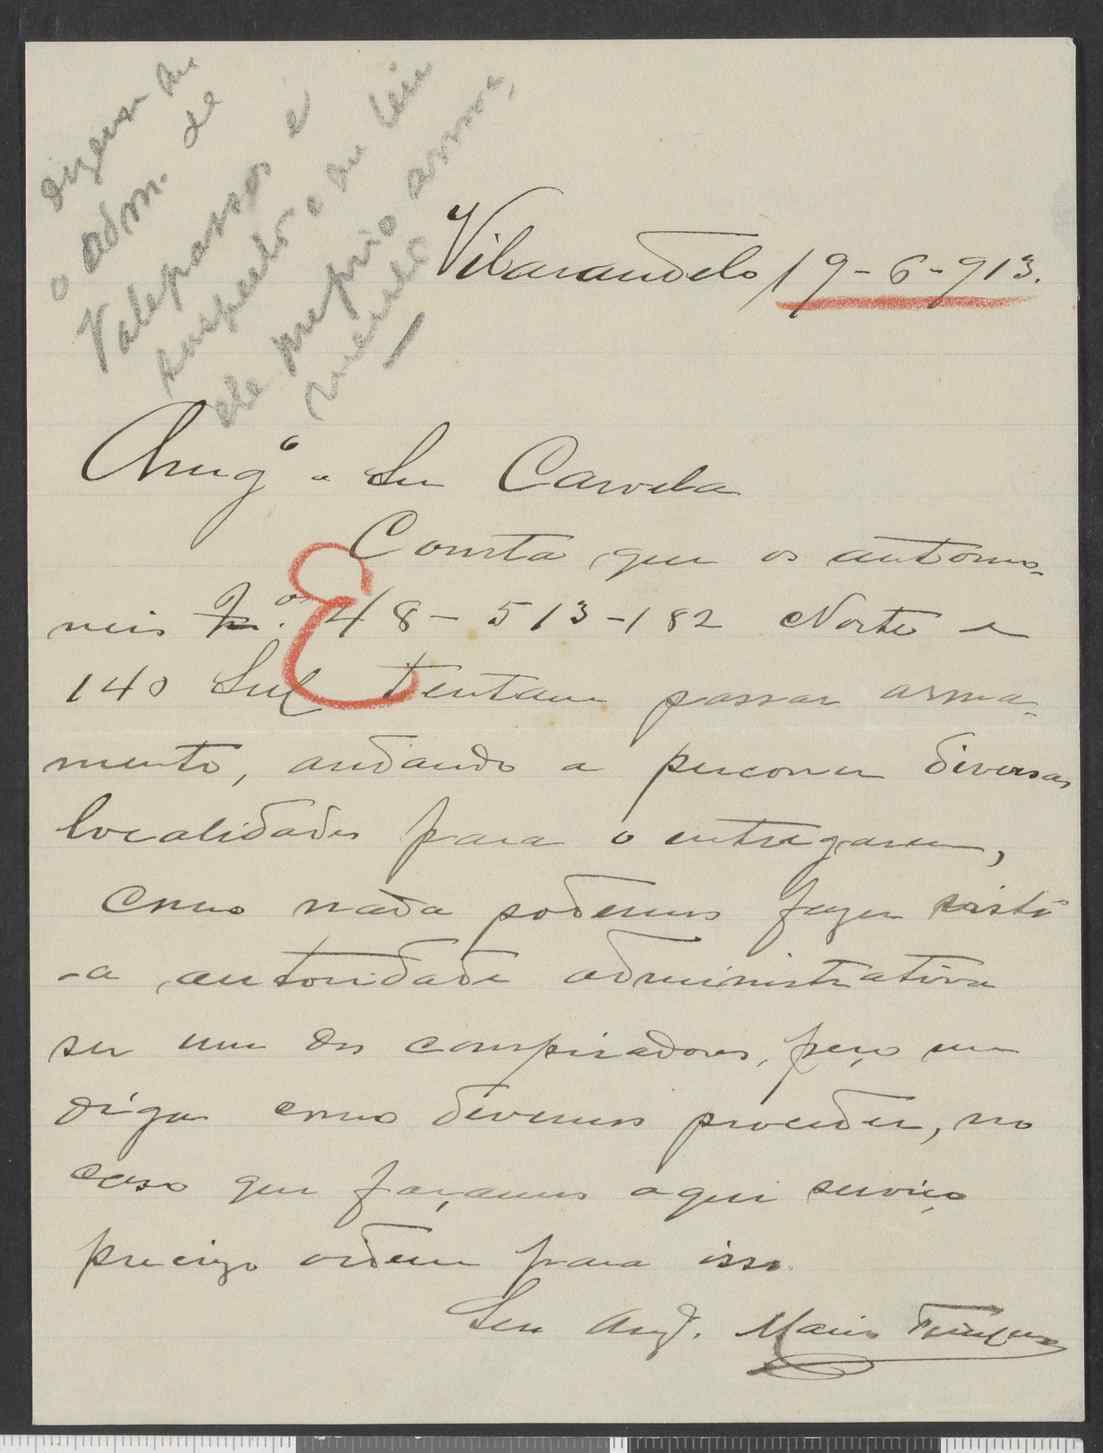 dizem que
o adm. de
Valepassos é
suspeito e que tem
ele proprio arma-
mento
Vilarandelo 19-6-913.
Amigo e Snr Carvela
Consta que os automo-
veis N.os 48-513-182 Norte e
140 Sul tentam passar arma-
mento, andando a percorrer diversas
localidades para o entregarem,
como nada podemos fazer visto
-a autoridade administrativa
ser um dos conspiradores, peço me
diga como devemos proceder, no
caso que façamos aqui serviço
precizo ordem para isso.
Seu Amg.o Mario